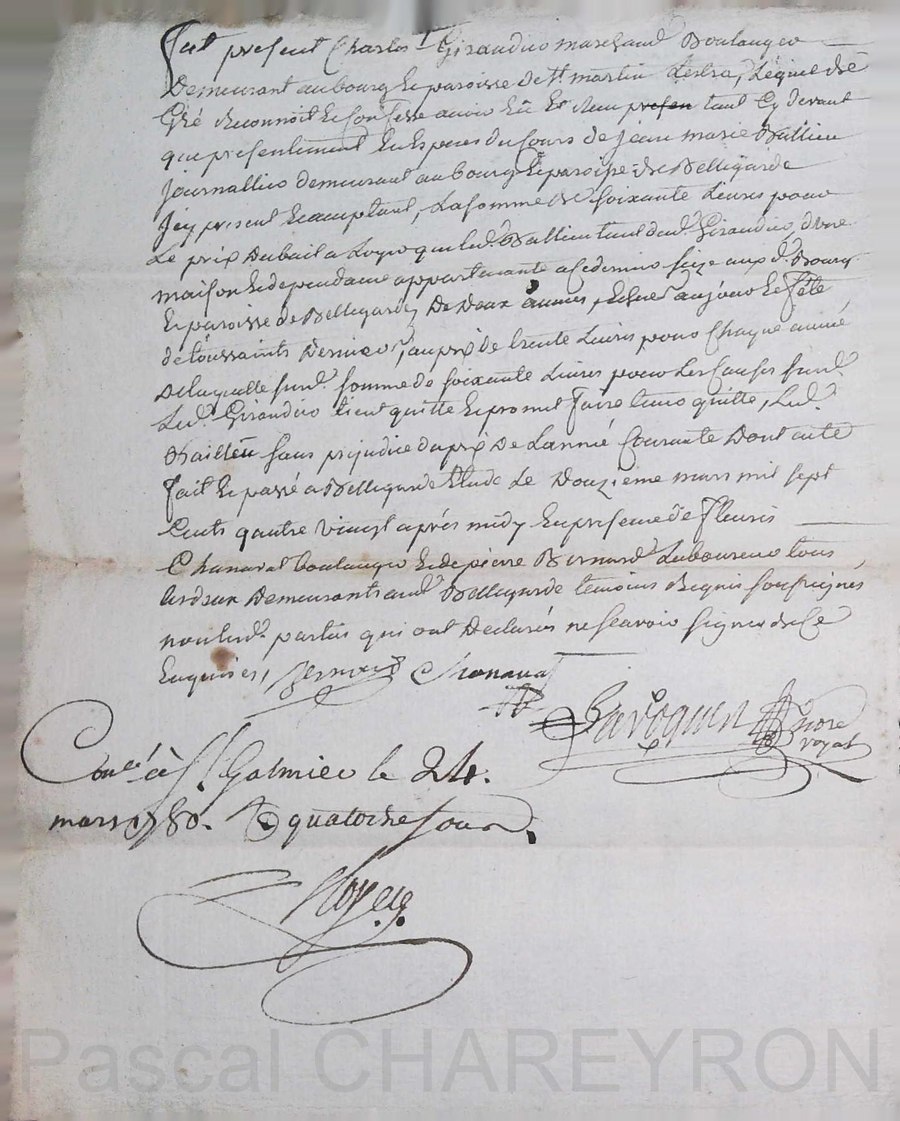 fut present Charles Giraudier marchand Boulanger
Demeurant au bourg & paroisse de St martin Lestra, Lequel de
Gré Reconnoit & Confesse avoir Eû & Receu presen tant Cy devant
que présentement En Especes du Cours de jean marie Baillieu
journallier demeurant au bourg & paroisse de Bellegarde
Icy present & acceptant, La somme de soixante Livres pour
Le prix du bail a Loyer que led. Baillieu tient dud. Giraudier, d'une
maison & dependance appartenante a Ce dernier size aux d. Bourg
& paroisse de Bellegarde, De Deux années, Echues au jour & fête
de toussaints Dernier, au prix de trente Livres pour Chaque année
De laquelle susd. somme de soixante Livres pour Les Causes susd.
Led. Giraudier tient quitte & promet faire tenir quitte, Led.
Baillieu sans prejudice du prix De L'année Courante Dont acte
fait & passé a Bellegarde Etude Le Douzieme mars mil sept
Cents quatre vingt après midy En presence de fleuris
Chanaval boulanger & de pierre Bernard Laboureur tous
les deux Demeurants aud. Bellegarde temoins Requis soussignés
non lesd. parties qui ont Declarés ne scavoir signer de Ce
Enquises,
Bernard Chanaval
Pavoquin nore
royal
Conlé à St. Galmier le 24.
mars 1780. R quatorze sous.
Noyer
Pascal CHAREYRON